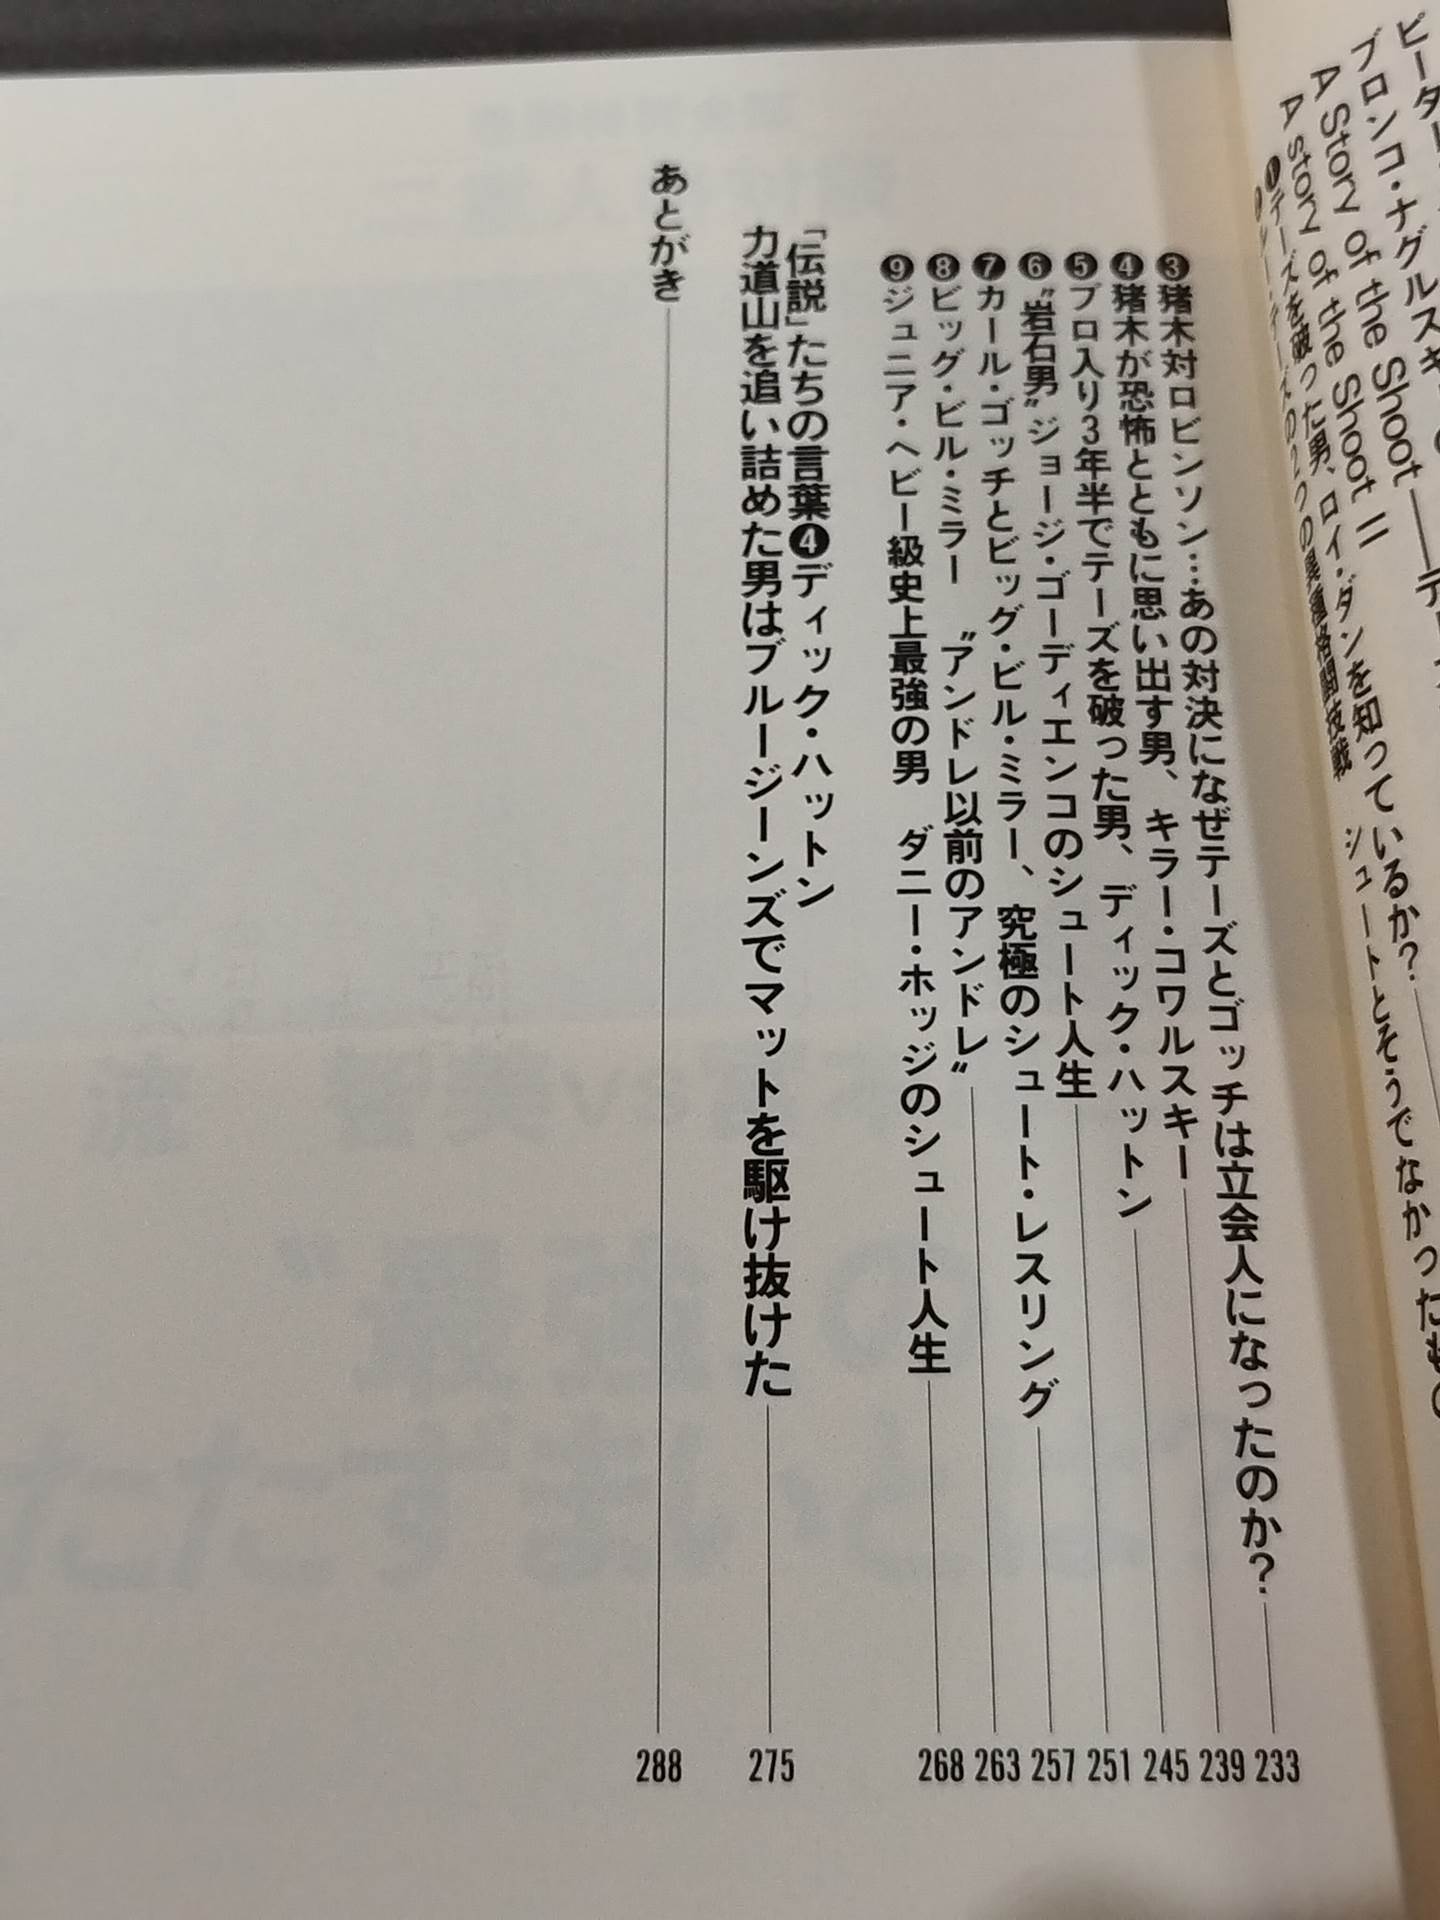 ブロンコ・ナグルスキー
A Story of the Shoot
A story of the Shoot II
❶テーズを破った男、ロイ・ダンを知っているか?
の異種格闘技戦 シュートとそうでなかったもの
❸猪木対ロビンソン…あの対決になぜテーズとゴッチは立会人になったのか? 233
❹猪木が恐怖とともに思い出す男、キラー・コワルスキー 239
❺プロ入り3年半でテーズを破った男、ディック・ハットン 245
❻〝岩石男〟ジョージ・ゴーディエンコのシュート人生 251
❼カール・ゴッチとビッグ・ビル・ミラー、究極のシュート・レスリング 257
❽ビッグ・ビル・ミラー 〝アンドレ以前のアンドレ〟 263
❾ジュニア・ヘビー級史上最強の男 ダニー・ホッジのシュート人生 268
「伝説」たちの言葉❹ディック・ハットン
力道山を追い詰めた男はブルージーンズでマットを駆け抜けた 275
あとがき 288